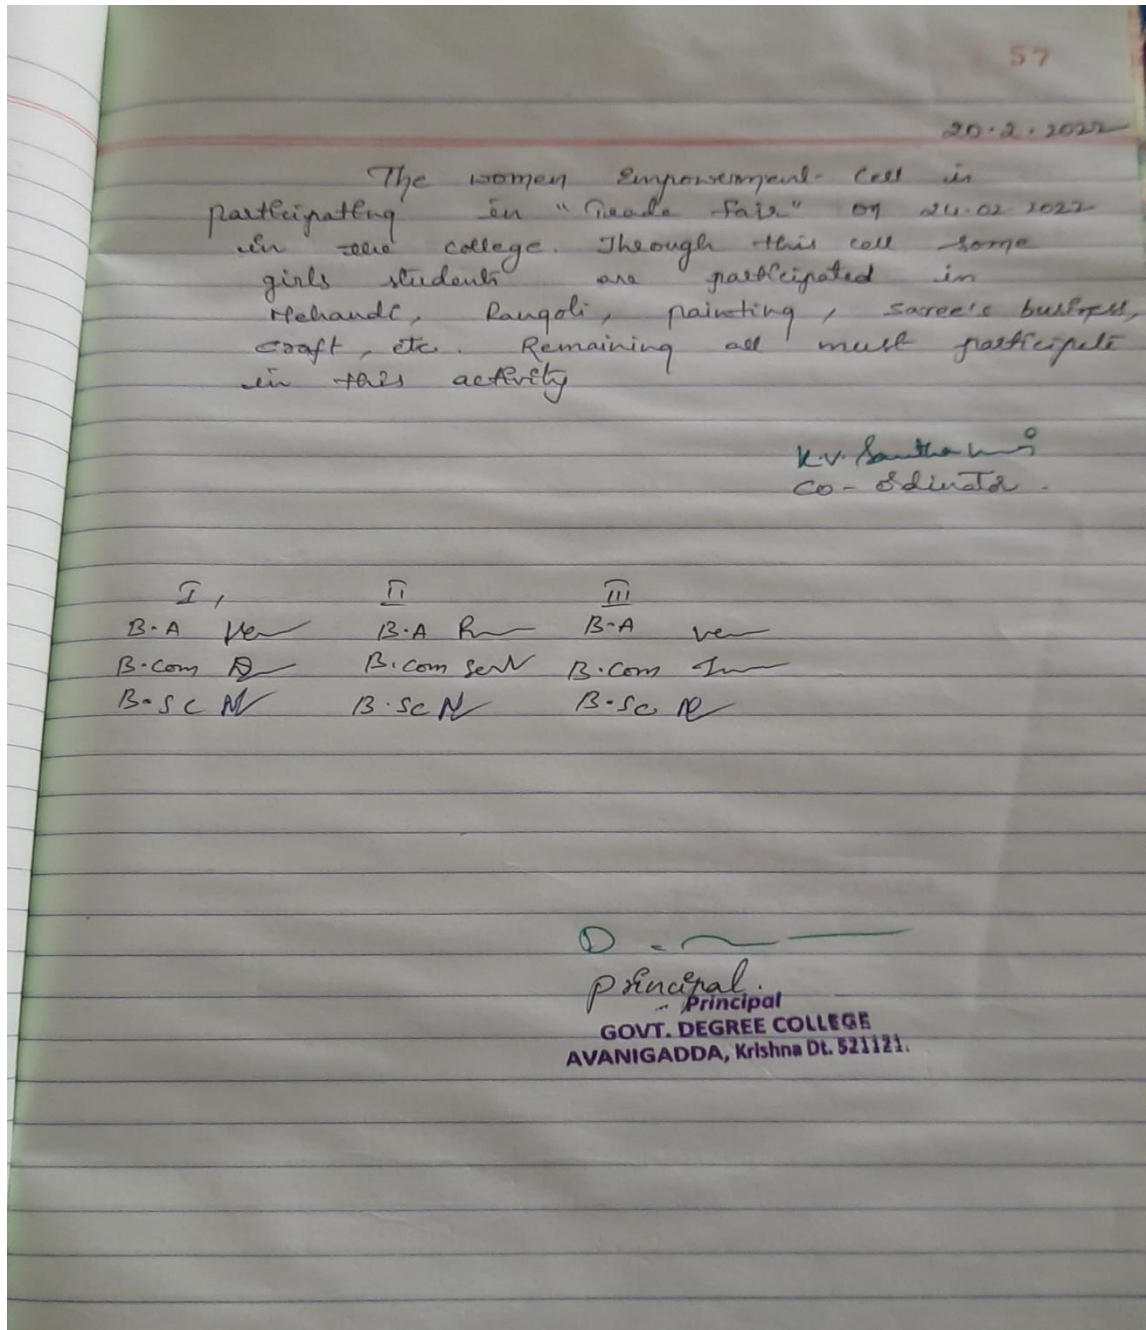 57
20.2.2022
The women Empowerment Cell is
participating in "Trade Fair" on 24.02.2022
in the college. Through this cell some
girls students are participated in
Mehandi, Rangoli, painting, saree's business,
craft, etc. Remaining all must participate
in this activity
K.V.
Co-ordinator.
I, II III
B.A B.A B.A
B.com B.com B.com
B.Sc B.Sc B.Sc
Principal.
Principal
GOVT. DEGREE COLLEGE
AVANIGADDA, Krishna Dt. 521121.